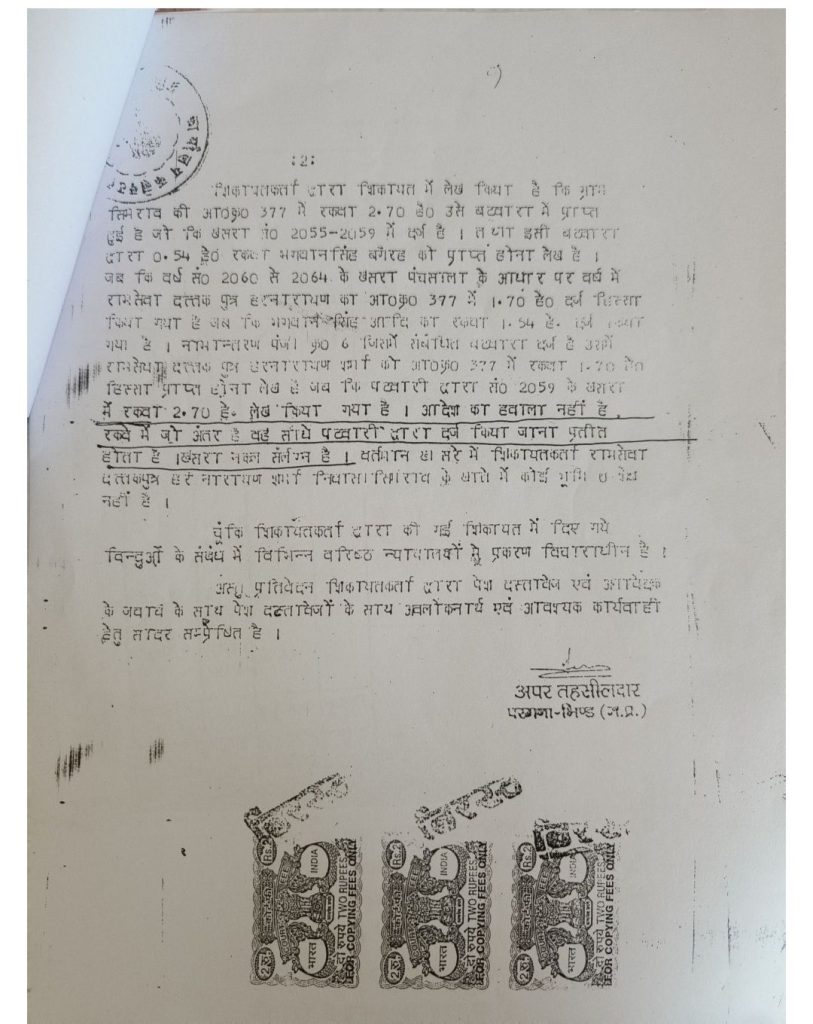 :2:
शिकायतकर्ता द्वारा शिकायत में लेख किया है कि ग्राम
सिमराव की आ०क्र० 377 में रकवा 2.70 है० उसे बटवारा में प्राप्त
हुई है जो कि खसरा सं० 2055-2059 में दर्ज है । तथा इसी बटवारा
द्वारा 0.54 है० रकवा भगवानसिंह बगैरह को प्राप्त होना लेख है ।
जब कि वर्ष सं० 2060 से 2064 के खसरा पंचसाला के आधार पर वर्ष में
रामसेवा दत्तक पुत्र हरनारायण का आ०क्र० 377 में 1.70 है० दर्ज हिस्सा
किया गया है जब कि भगवान सिंह आदि का रकवा 1.54 है. दर्ज किया
गया है । नामान्तरण पंजी क्र० 6 जिसमें संबंधित बटवारा दर्ज है उसमें
रामसेवा दत्तक पुत्र हरनारायण शर्मा को आ०क्र० 377 में रकवा 1.70 है०
हिस्सा प्राप्त होना लेख है जब कि पटवारी द्वारा सं० 2059 के खसरा
में रकवा 2.70 है. लेख किया गया है । आदेश का हवाला नहीं है
रकवे में जो अंतर है वह सीधे पटवारी द्वारा दर्ज किया जाना प्रतीत
होता है । खसरा नकल संलग्न है । वर्तमान खसरे में शिकायतकर्ता रामसेवा
दत्तकपुत्र हर नारायण शर्मा निवासी सिमराव के खाते में कोई भूमि शेष
नहीं है ।
चूंकि शिकायतकर्ता द्वारा की गई शिकायत में दिए गये
विन्दुओं के संबंध में विभिन्न वरिष्ठ न्यायालयों में प्रकरण विचाराधीन है ।
अस्तु प्रतिवेदन शिकायतकर्ता द्वारा पेश दस्तावेज एवं आवेदक
के जवाब के साथ पेश दस्तावेजों के साथ अवलोकनार्थ एवं आवश्यक कार्यवाही
हेतु सादर सम्प्रेषित है ।
अपर तहसीलदार
परगना-भिण्ड (म.प्र.)
Rs.2 INDIA भारत दो रुपये TWO RUPEES FOR COPYING FEES ONLY
Rs.2 INDIA भारत दो रुपये TWO RUPEES FOR COPYING FEES ONLY
INDIA भारत दो रुपये TWO RUPEES FOR COPYING FEES ONLY